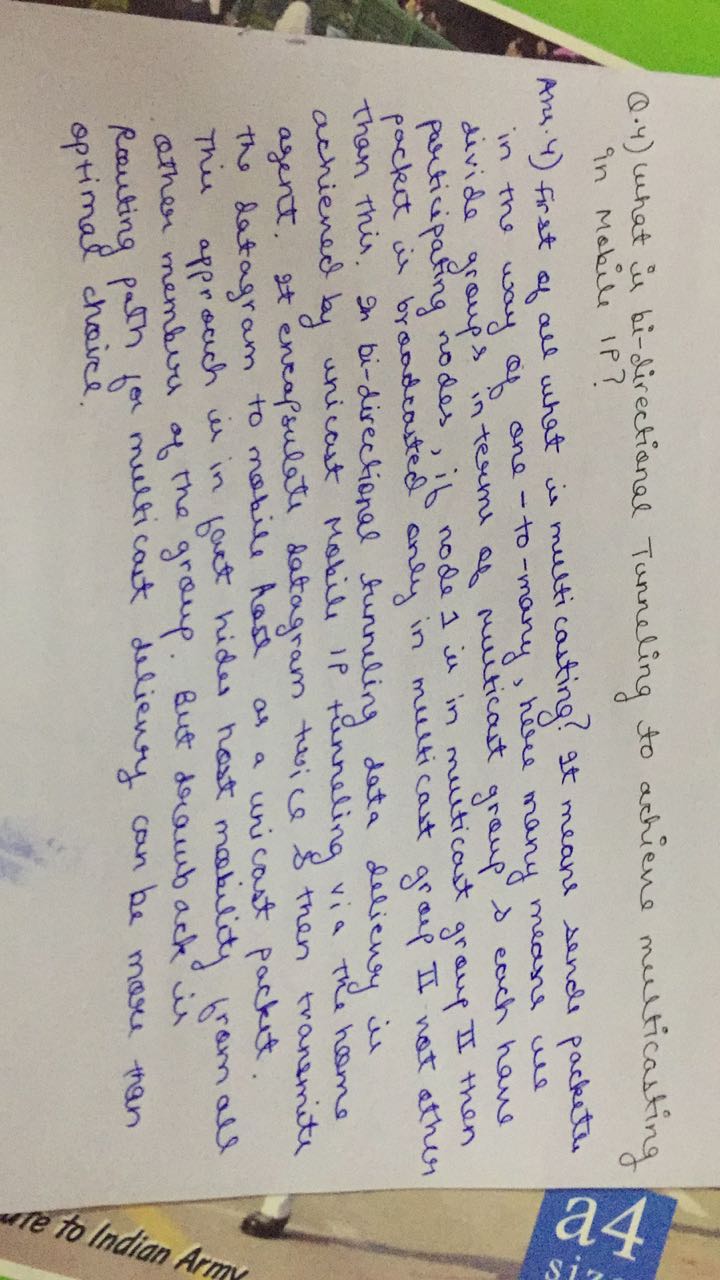 Q.4) What is bi-directional Tunneling to achieve multicasting
in Mobile IP?
Ans.4) First of all what is multicasting? It means sends packets
in the way of one-to-many, here many means we
divide groups in terms of multicast group & each have
participating nodes, if node 1 is in multicast group II then
packet is broadcasted only in multicast group II not other
than this. In bi-directional tunneling data delievry is
achieved by unicast Mobile IP tunneling via the home
agent. It encapsulate datagram twice & then transmits
the datagram to mobile host as a unicast packet.
This approach is in fact hides host mobility from all
other members of the group. But drawback is
Routing path for multicast delievry can be more than
optimal choice.
a4
siz
te to Indian Army